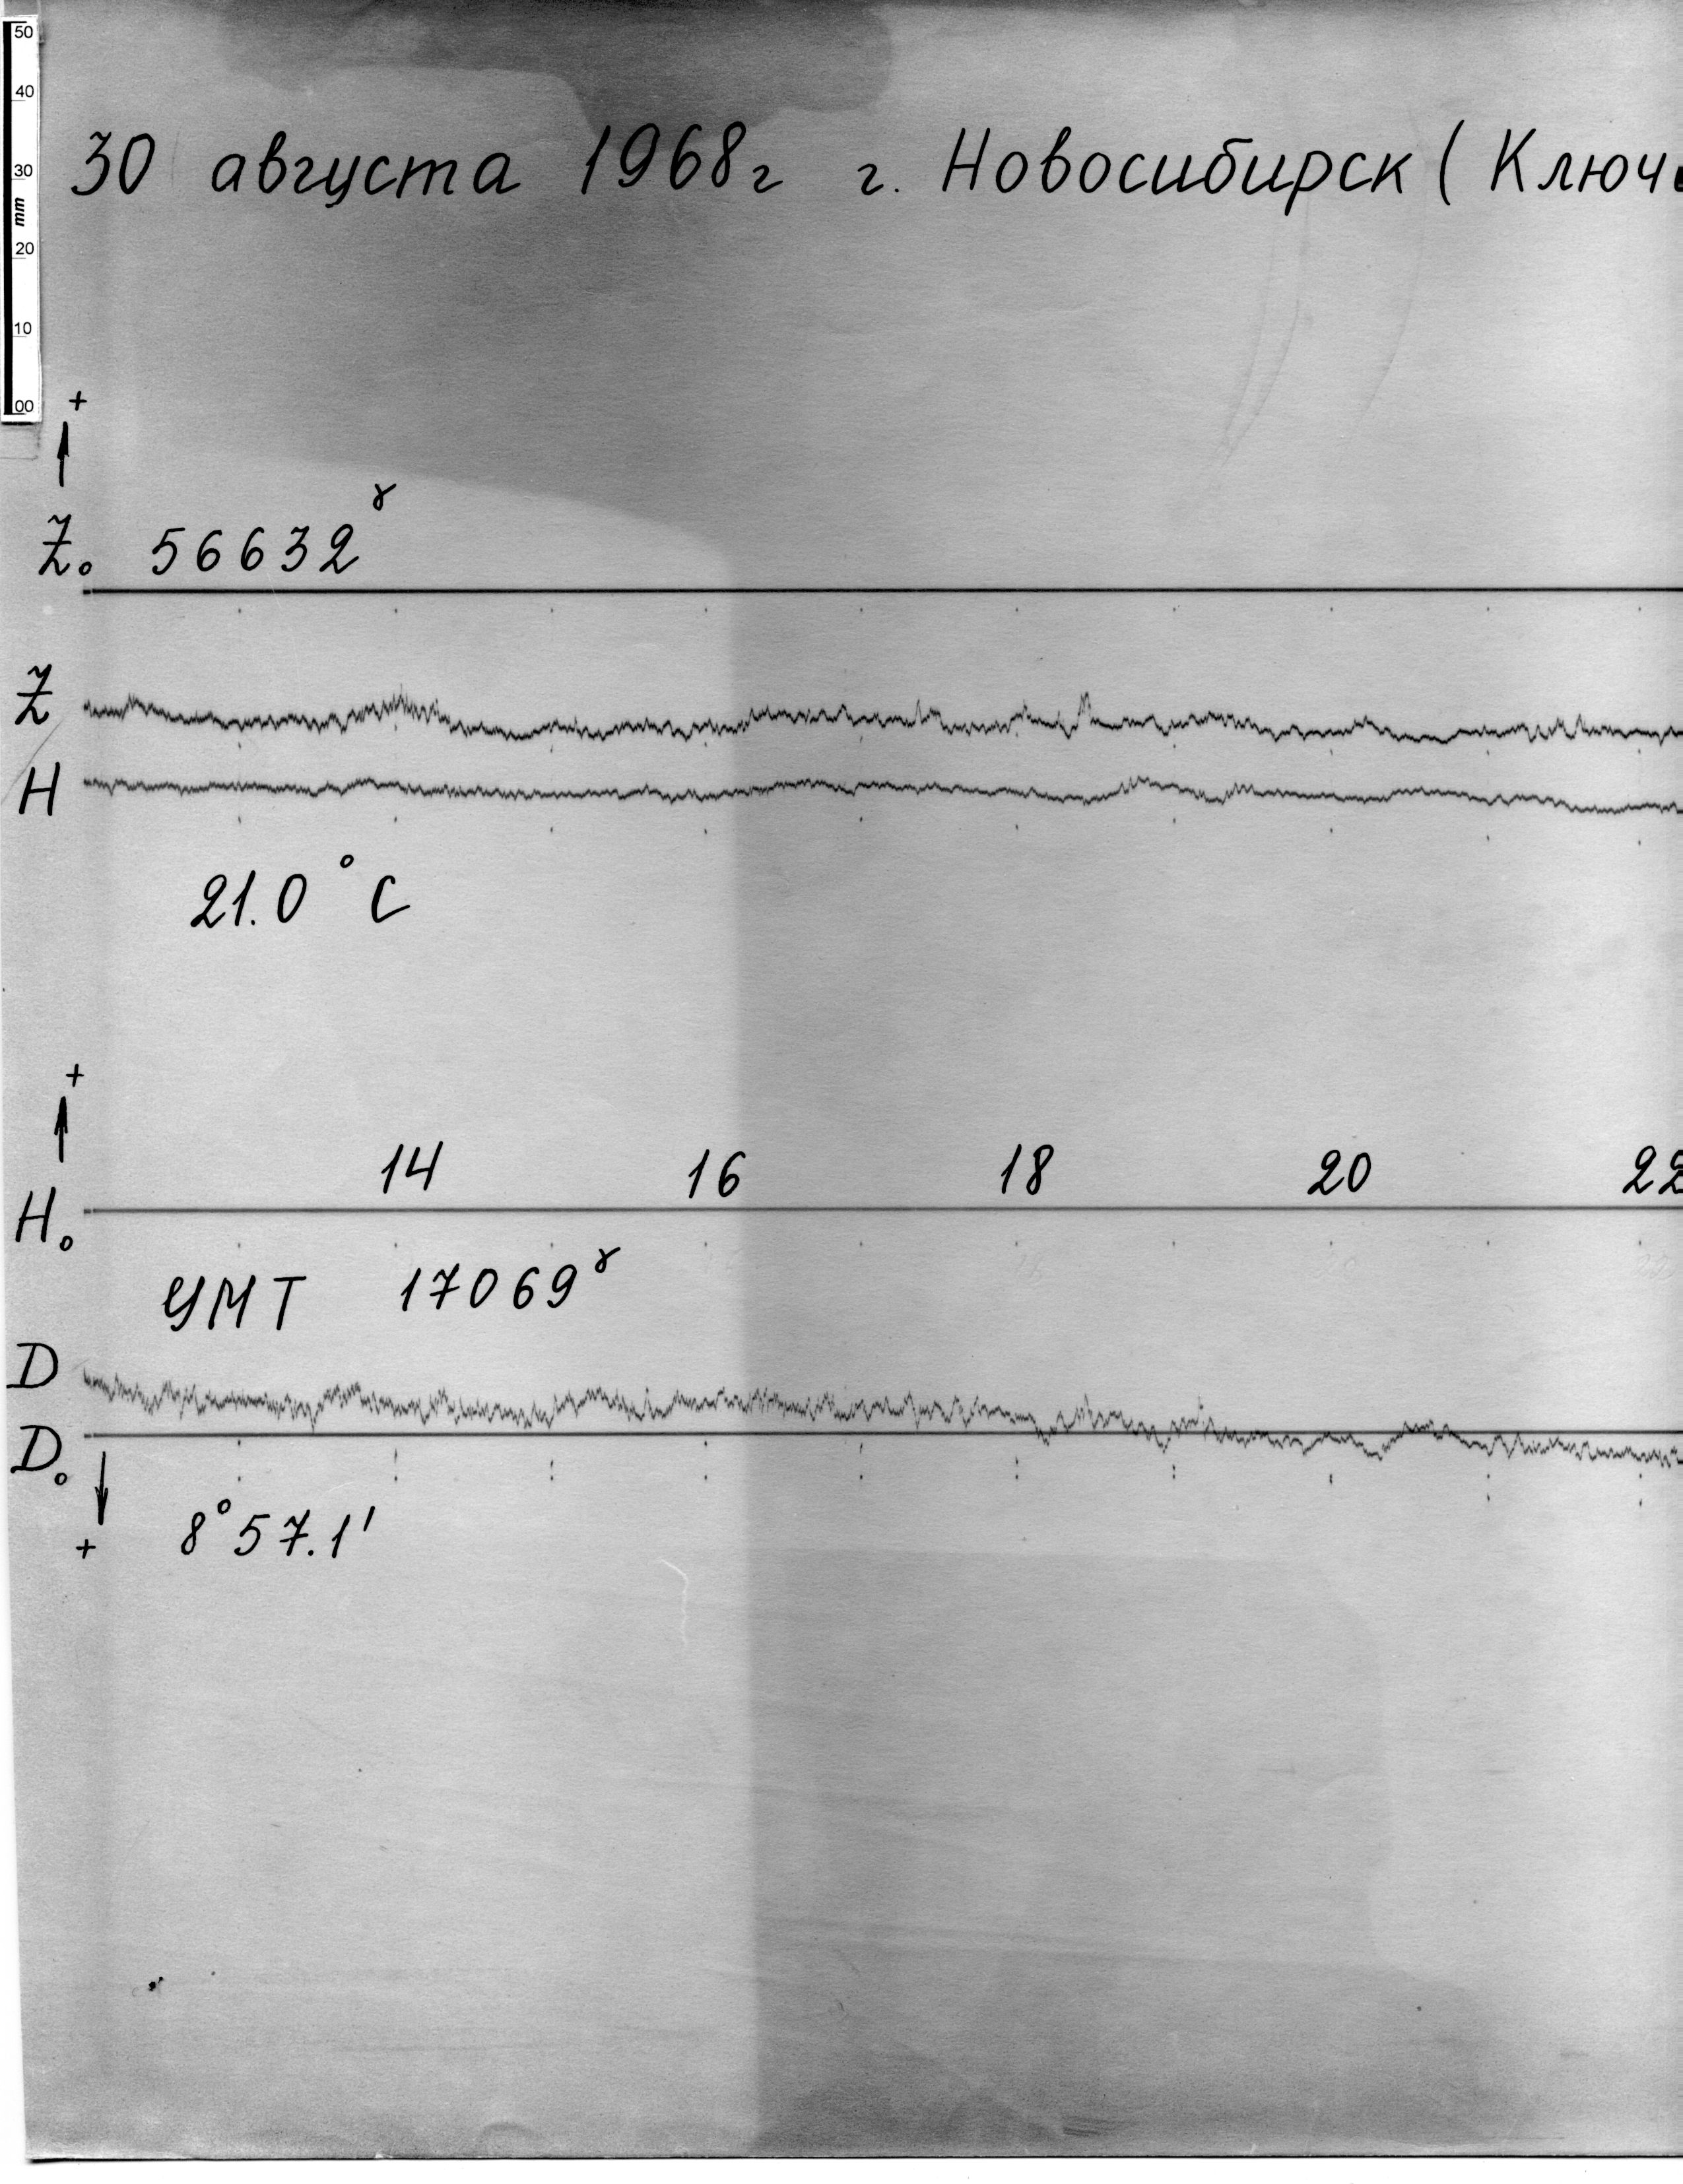 50
40
30
mm
20
10
00
30 августа 1968г г. Новосибирск (
+
Z₀ 56632 γ
Z
H
21.0°C
+
14 16 18 20 22
H₀
УМТ 17069 γ
D
D₀
+ 8°57.1'